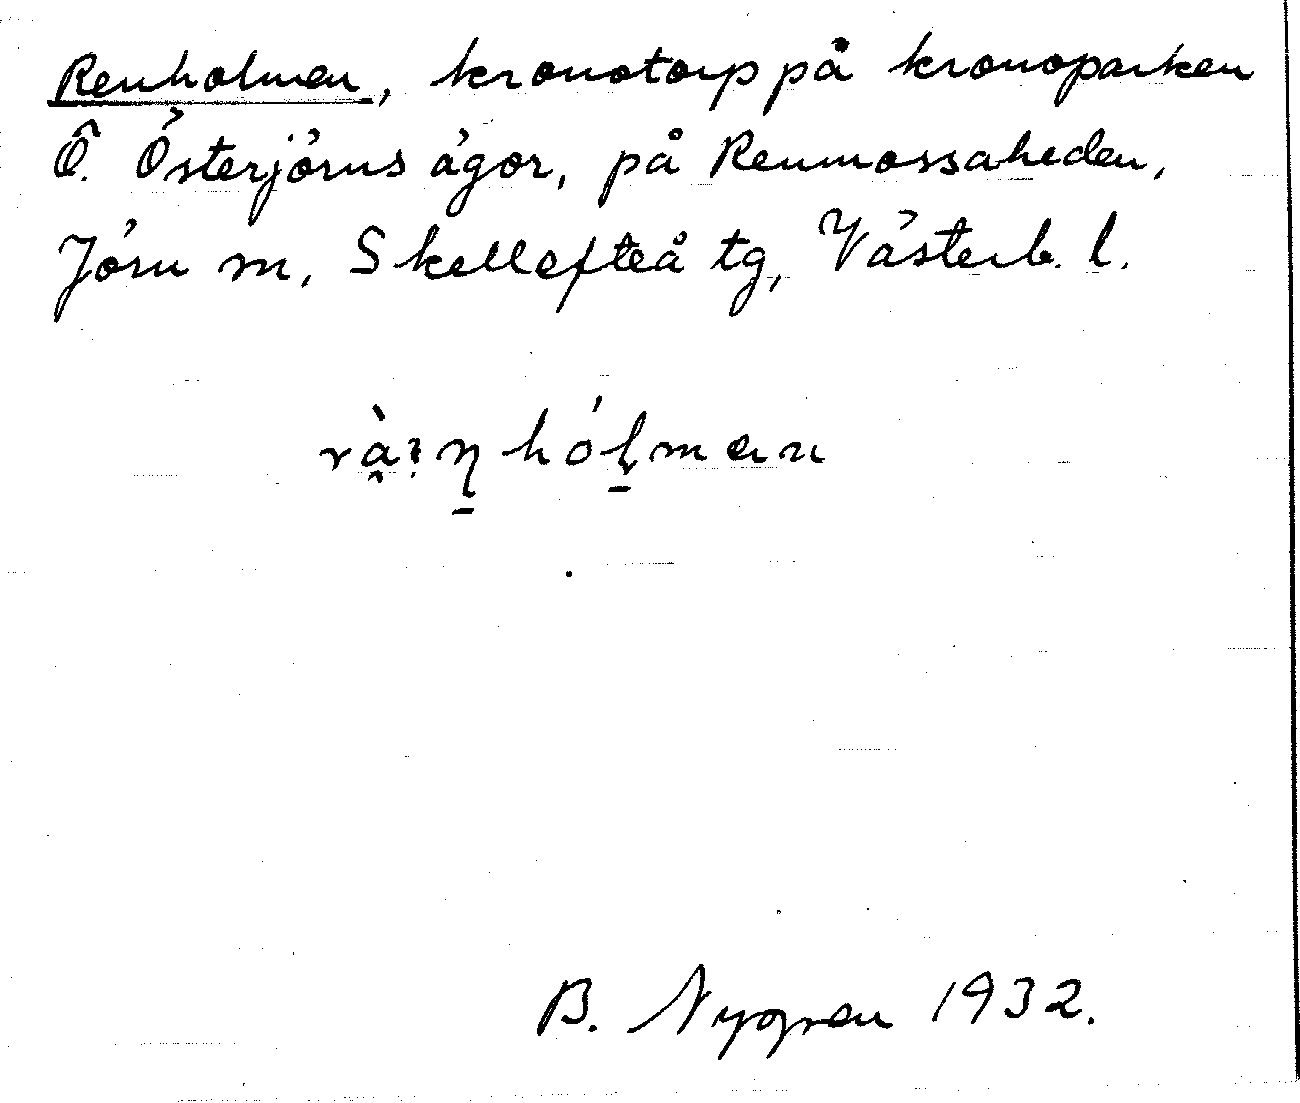 Renholmen, kronotorp på kronoparken
Ö. Österjörns ägor, på Renmossaheden,
Jörn sn, Skellefteå tg, Västerb. l.
B. Nygren 1932.